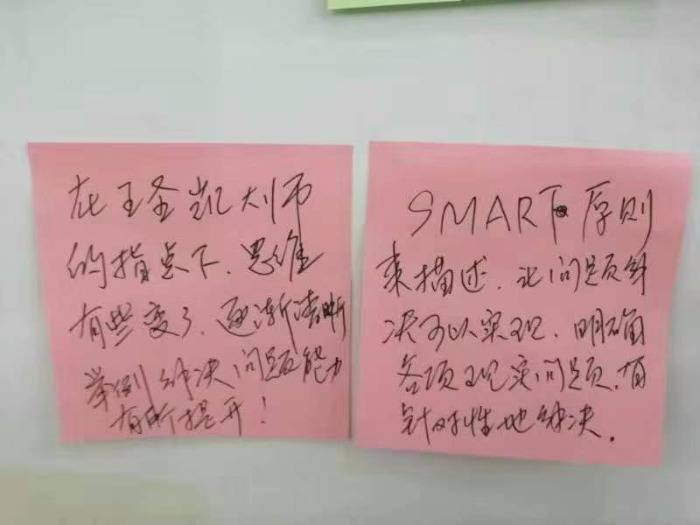 在王圣凯大师
的指点下、思维
有些变了、逐渐清晰
举例解决问题能力
有所提升！
SMART原则
来描述、让问题解
决可以实现、明确
各项现实问题、有
针对性地解决.